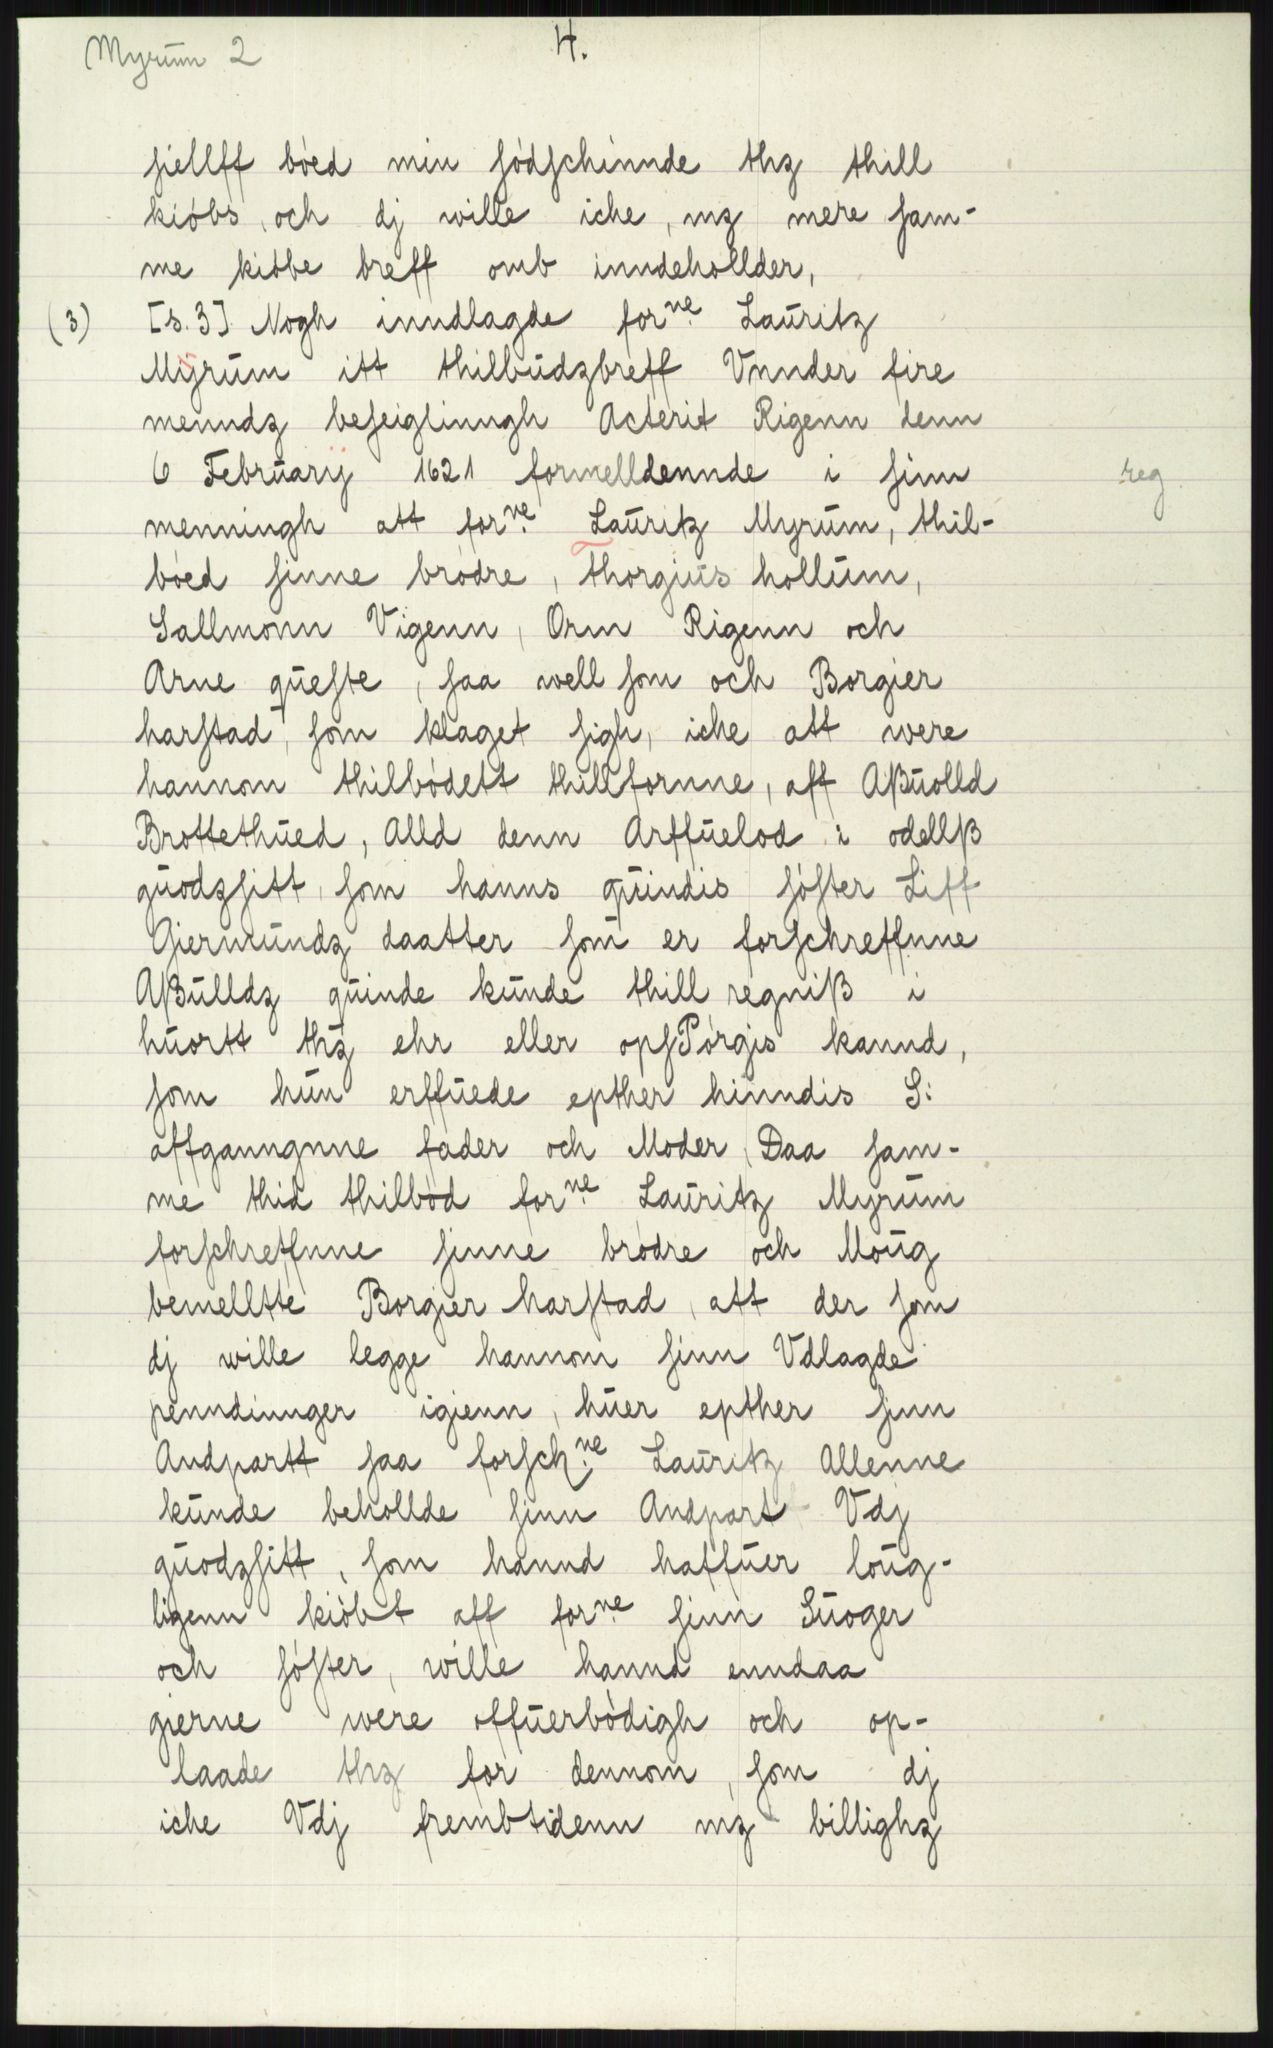 Myrum 2
4.
siellff bóed min sódschinnde thz thill
kióbs, och dj wille iche, mz mere sam-
me kióbe breff omb inndehollder,
(3) [s. 3] Nogh inndlagde forne Lauritz
Myrum itt thilbudzbreff Vnnder fire
menndz beseiglinngh Acterit Rigenn denn
6 Februarij 1621 formelldennde i sinn reg
menningh att forne Lauritz Myrum, thil-
bóed sinne brodre, Thorgius hollum,
Sallmonn Vigenn, Orm Rigenn och
Arne queste, saa well som och Borgier
harstad, som klaget sigh, iche att were
hannom thilbódett thillfornne, aff Aßuolld
Brottethued, Alld denn Arffuelod i odellß
guodzsitt, som hanns quindis sóster Liff
Giermundz daatter som er forschreffnne
Aßulldz quinde kunde thill regniß i
huortt thz ehr eller opsPórgis kannd,
som hun erffuede epther hinndis S:
affganngnne fader och Moder, Daa sam-
me thid thilbód forne Lauritz Myrum
forschreffnne sinne brodre och Moug
bemelltte Borgier harstad, att der som
dj wille legge hannom sinn Vdlagde
penndinnger igienn, huer epther sinn
Andpartt saa forschne Lauritz Allenne
kunde behollde sinn Andpart Vdj
guodzsitt, som hannd haffuer loug-
ligenn kióbt aff forne sinn Suoger
och sóster, wille hannd enndaa
gierne were offuerbódigh och op-
laade thz for dennom, som dj
iche Vdj frembtidenn mz billighz